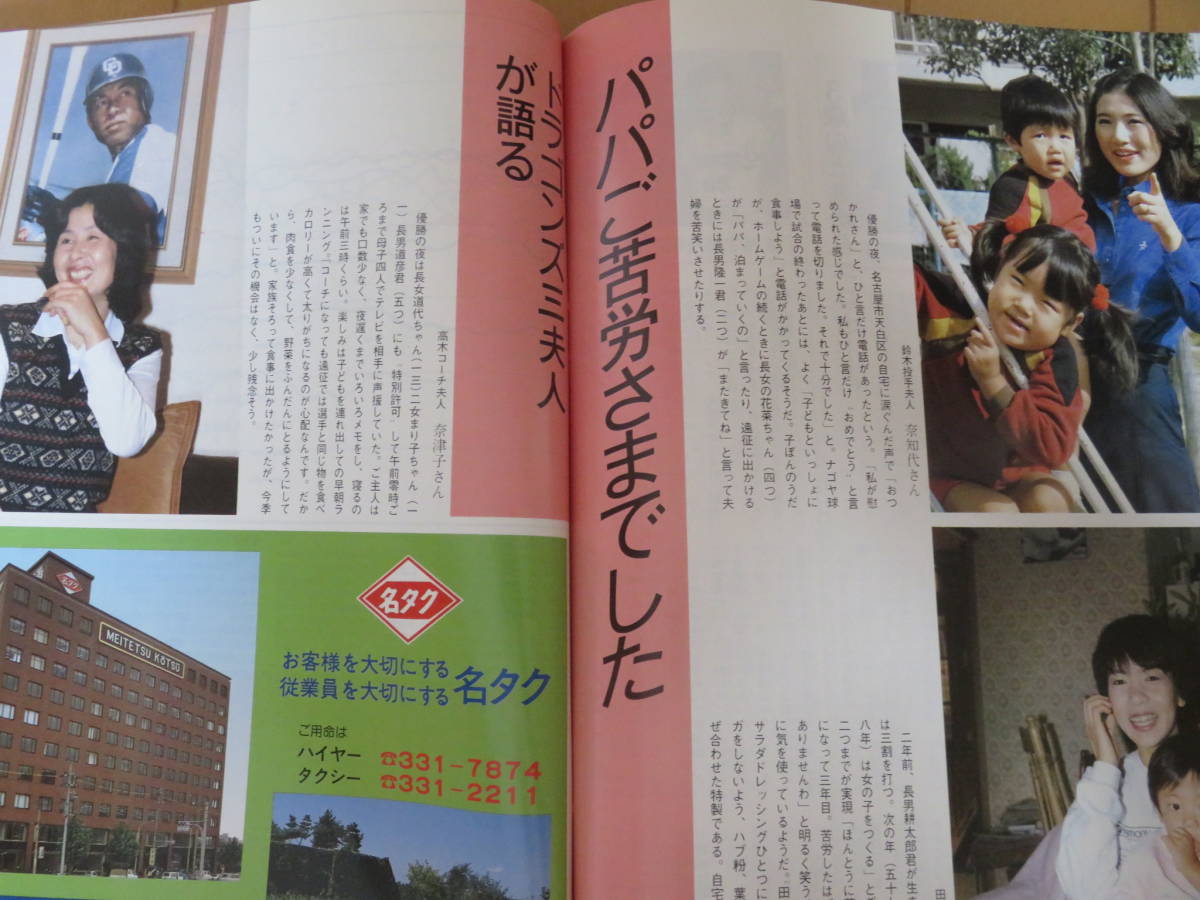 パパご苦労さまでした
ドラゴンズ三夫人
が語る
鈴木投手夫人 奈知代さん
優勝の夜、名古屋市天白区の自宅に涙ぐんだ声で「おつ
かれさん」と、ひと言だけ電話があったという。「私が慰
められた感じでした。私もひと言だけ〝おめでとう〟と言
って電話を切りました。それで十分でした」と。ナゴヤ球
場で試合の終わったあとには、よく「子どもといっしょに
食事しよう」と電話がかかってくるそうだ。子ぼんのうだ
が、ホームゲームの続くときに長女の花菜ちゃん(四つ)
が「パパ、泊まっていくの」と言ったり、遠征に出かける
ときには長男隆一君(二つ)が「またきてね」と言って夫
婦を苦笑いさせたりする。
高木コーチ夫人 奈津子さん
優勝の夜は長女道代ちゃん(一三)二女まり子ちゃん(一
一)長男道彦君(五つ)にも〝特別許可〟して午前零時ご
ろまで母子四人でテレビを相手に声援していた。ご主人は
家でも口数少なく、夜遅くまでいろいろメモをし、寝るの
は午前三時くらい。楽しみは子どもを連れ出しての早朝ラ
ンニング。「コーチになっても遠征では選手と同じ物を食べ
カロリーが高くて太りがちになるのが心配なんです。だか
ら、肉食を少なくして、野菜をふんだんにとるようにして
います」と。家族そろって食事に出かけたかったが、今季
もついにその機会はなく、少し残念そう。
田
二年前、長男耕太郎君が生
は三割を打つ。次の年(五十
八年)は女の子をつくる」と
二つまでが実現「ほんとうに
になって三年目。苦労したは
ありませんわ」と明るく笑う
に気を使っているようだ。「田
サラダドレッシングひとつに
ガをしないよう、ハブ粉、葉
ぜ合わせた特製である。自宅
名タク
MEITETSU KŌTSŪ
名タク
お客様を大切にする
従業員を大切にする 名タク
ご用命は
ハイヤー ☎331-7874
タクシー ☎331-2211